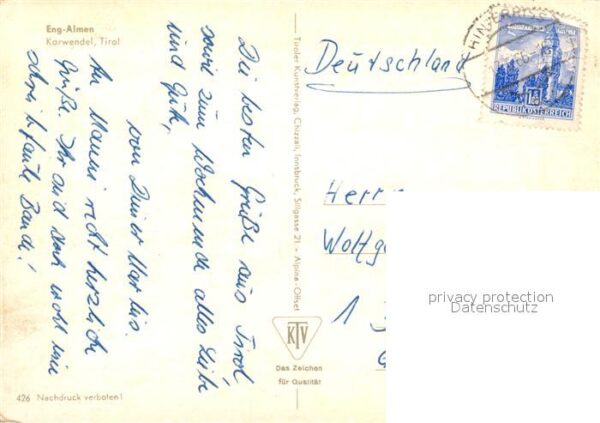 Eng-Almen
Karwendel, Tirol
Die besten Grüße aus Tirol,
sowie zum Wochenende alles Liebe
und Gute,
von Deiner
An Manni recht herzliche
Grüße. Ihr seid doch wohl eine
faule Bande!
426 Nachdruck verboten!
Tiroler Kunstverlag Chizzali, Innsbruck, Sillgasse 21 - Alpina-Offset
KTV
Das Zeichen
für Qualität
Deutschland
REPUBLIK ÖSTERREICH
Herrn
Wolfg
1
privacy protection
Datenschutz